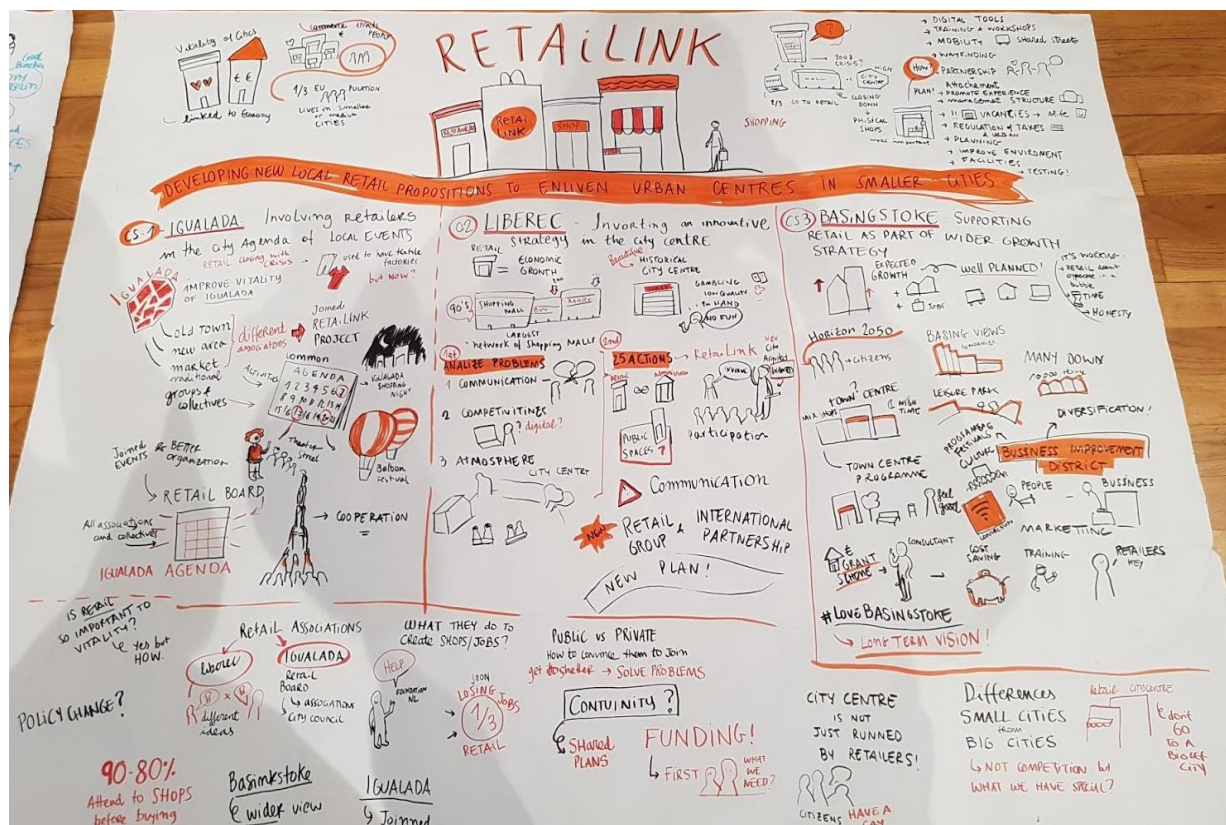 Vitality of Cities
€ €
linked to Economy
commerce attracts
PEOPLE
€
1/3 EU
LIVES IN SMALLER
or medium
CITIES
RETAiLINK
RETAIL
LINK
SHOP
SHOPPING
2008
CRISIS?
HIGH
CITY
CENTRE
2/3 GO TO RETAIL
CLOSING
DOWN
PHISICAL
SHOPS
most important
HOW?
PLAN!
→ DIGITAL TOOLS
→ TRAINING & WORKSHOPS
→ MOBILITY
Shared streets
→ WAYFINDING
PARTNERSHIP
Attachement
PROMOTE EXPERIENCE
management STRUCTURE
VACANCIES →
→ REGULATION of TAXES
& URBAN
→ PLANNING
→ IMPROVE ENVIROMENT
→ FACILITIES
→ TESTING!
DEVELOPING NEW LOCAL RETAIL PROPOSITIONS TO ENLIVEN URBAN CENTRES IN SMALLER CITIES
CS-1 IGUALADA. Involving Retailers
in the City Agenda of LOCAL EVENTS
RETAIL closing with
CRISIS
used to have textile
factories
but now?
IGUALADA
IMPROVE VITALITY
OF IGUALADA
old town
new area
market
traditional
groups &
collectives
different
associations
Joined!
RETAiLINK
PROJECT
Common
ACTIVITIES
AGENDA
IGUALADA
SHOPPING
NIGHT
Theatre
Street
Balloon
Festival
Joined
EVENTS
& BETTER
ORGANIZATION
RETAIL BOARD
All associations
and collectives
IGUALADA AGENDA
→ COOPERATION
02 LIBEREC - Invorting an innovative
strategy in the city centre
RETAIL
= ECONOMIC
GROWTH
Beautiful
HISTORICAL
CITY CENTRE
90'S
SHOPPING
MALL
BUY
LARGEST
network of Shopping MALLS
GAMBLING
LOW QUALITY
2n HAND
NO FUN
1st
ANALIZE PROBLEMS
1 COMMUNICATION
2 COMPETIVITINGS
? digital?
3 ATMOSPHERE
CITY CENTRE
2nd
25 ACTIONS
RetaiLink
NEW
City
PUBLIC
SPACES?
Participation
Communication
NEW
RETAIL
GROUP
&
INTERNATIONAL
PARTNERSHIP
NEW PLAN!
CS3 BASINGSTOKE SUPPORTING
RETAIL AS PART OF WIDER GROWTH
STRATEGY
EXPECTED
GROWTH
+
+ JOBS
well PLANNED!
IT'S WORKING:
bubble
→ TIME
→ HONESTY
Horizon 2050
citizens
BASING VIEWS
MANY DOWN
TOWN CENTRE
?
LEISURE PARK
DIVERSIFICATION!
TOWN CENTRE
PROGRAMME
feel
good
FESTIVALS
CULTURE
BUSSINESS IMPROVEMENT
DISTRICT
PEOPLE
BUSSINESS
MARKETING
€
GRANT
SCHEME
CONSULTANT
COST
SAVING
TRAINING
RETAILERS
KEY
#LOVEBASINGSTOKE
→ LONG TERM VISION!
IS RETAIL
SO IMPORTANT TO
VITALITY?
Yes but
HOW.
POLICY CHANGE?
90-80%
Attend to SHOPS
before buying
RETAIL ASSOCIATIONS
different
ideas
IGUALADA
Retail
BOARD
→ ASSOCIATIONS
CITY COUNCIL
Basimkstoke
wider view
WHAT THEY DO TO
CREATE SHOPS/JOBS?
HELP
FOUNDATION
NL
SOON
LOSING JOBS
1/3
RETAIL
IGUALADA
→ Joinned
PUBLIC VS PRIVATE
How to convince them to Join
→ SOLVE PROBLEMS
CONTUINITY?
SHARED
PLANS
FUNDING!
→ FIRST
WHAT
WE
NEED?
CITY CENTRE
IS NOT
JUST RUNNED
BY RETAILERS!
CITIZENS HAVE A
SAY
Differences
SMALL CITIES
FROM
BIG CITIES
→ NOT COMPETITION but
WHAT WE HAVE SPECIAL?
Retail
CITY CENTRE
dont
GO
TO A
BIGGER
CITY